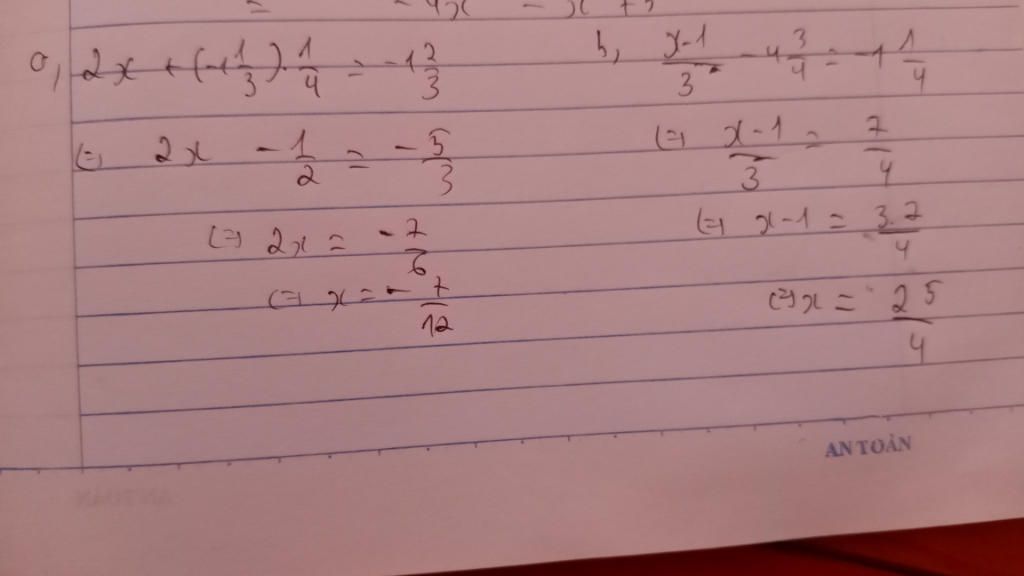 a, 2x + (-1 1/3) . 1/4 = -1 2/3
(=) 2x - 1/2 = - 5/3
(=) 2x = - 7/6
(=) x = - 7/12
b, x-1/3 - 4 3/4 = -1 1/4
(=) x-1/3 = 7/4
(=) x-1 = 3.7/4
(=) x = 25/4
AN TOÀN